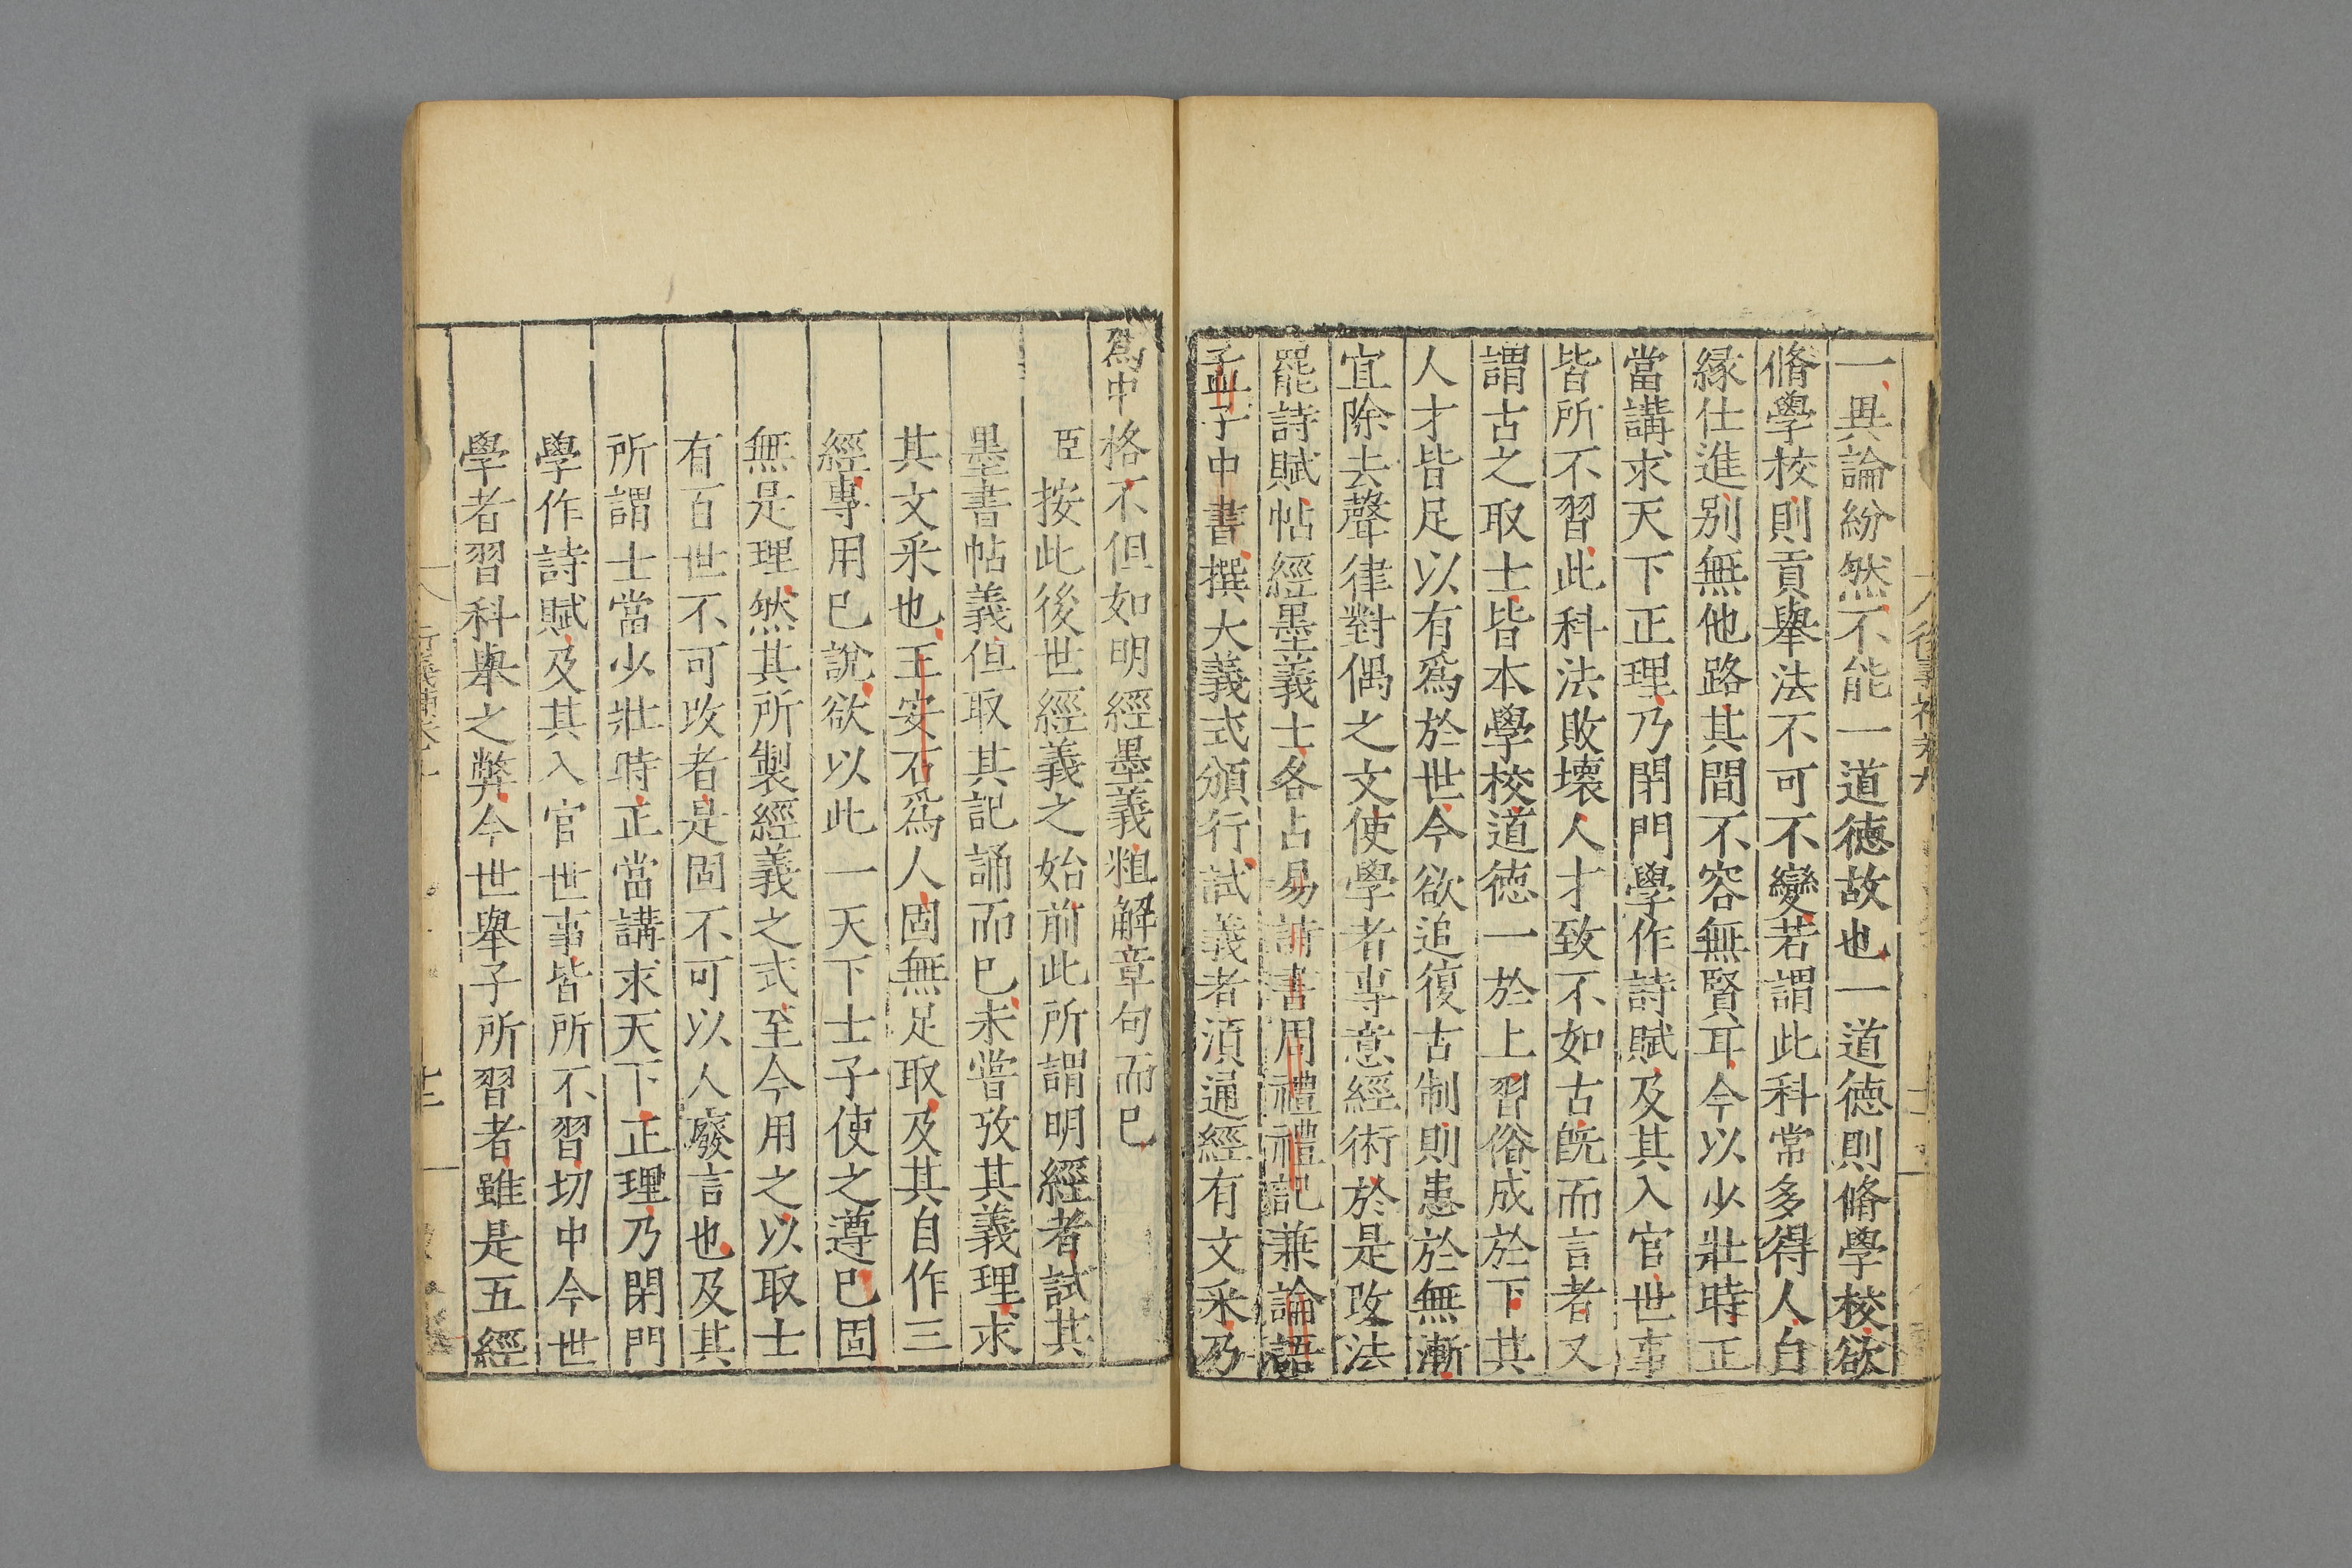 一異論紛然不能一道德故也一道德則脩學校欲
脩學校則貢舉法不可不變若謂此科常多得人自
緣仕進别無他路其間不容無賢耳今以少壯時正
當講求天下正理乃閉門學作詩賦及其入官世事
皆所不習此科法敗壞人才致不如古旣而言者又
謂古之取士皆本學校道德一於上習俗成於下其
人才皆足以有爲於世今欲追復古制則患於無漸
宜除去聲律對偶之文使學者專意經術於是改法
罷詩賦帖經墨義士各占易詩書周禮禮記兼論語
孟子中書撰大義式頒行試義者湏通經有文采乃
爲中格不但如明經墨義粗解章句而已
臣按此後世經義之始前此所謂明經者試其
墨書帖義但取其記誦而已未嘗攷其義理求
其文采也王安石爲人固無足取及其自作三
經專用己說欲以此一天下士子使之遵己固
無是理然其所製經義之式至今用之以取士
有百世不可改者是固不可以人廢言也及其
所謂士當少壯時正當講求天下正理乃閉門
學作詩賦及其入官世事皆所不習切中今世
學者習科舉之弊今世舉子所習者雖是五經